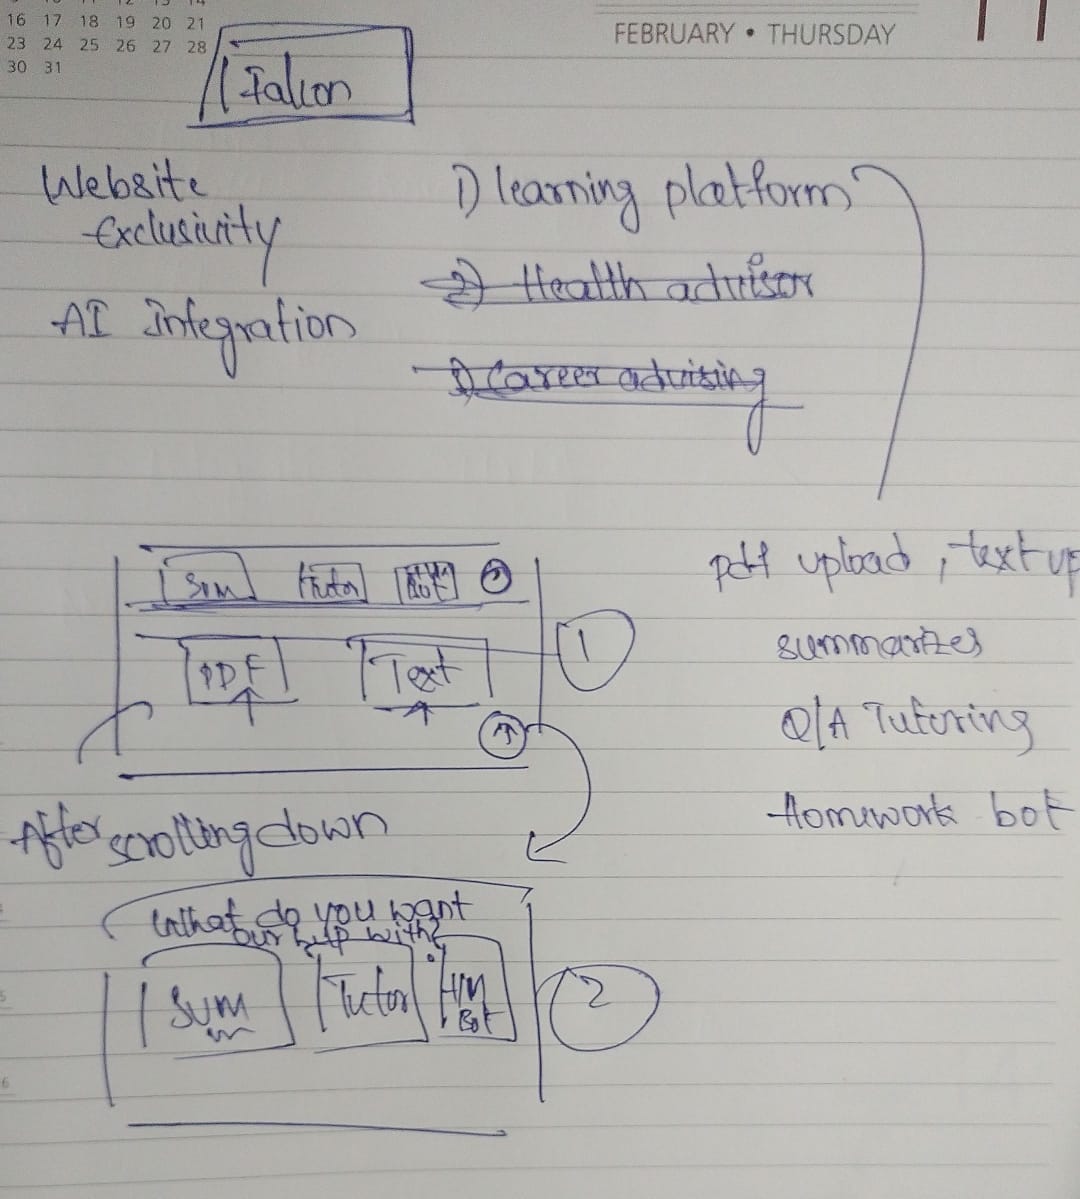 16 17 18 19 20 21
23 24 25 26 27 28
30 31
FEBRUARY • THURSDAY
11
Website
Exclusivity
AI Integration
1) learning platform
2) Health advisor
3) Career advising
pdf upload, text up
summarizes
Q/A Tutoring
Homework bot
Sum Tutor
PDF Text
1
After scrolling down
What do you want
our help with?
Sum Tutor HW
Bot
2